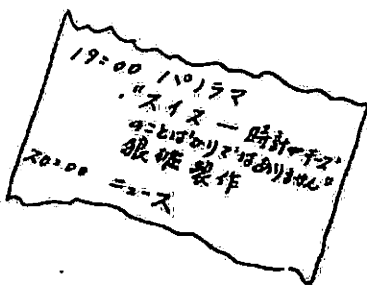 19:00 パノラマ
"スイス — 時計やチーズ
のことばかりではありません"
製作
20:00 ニュース